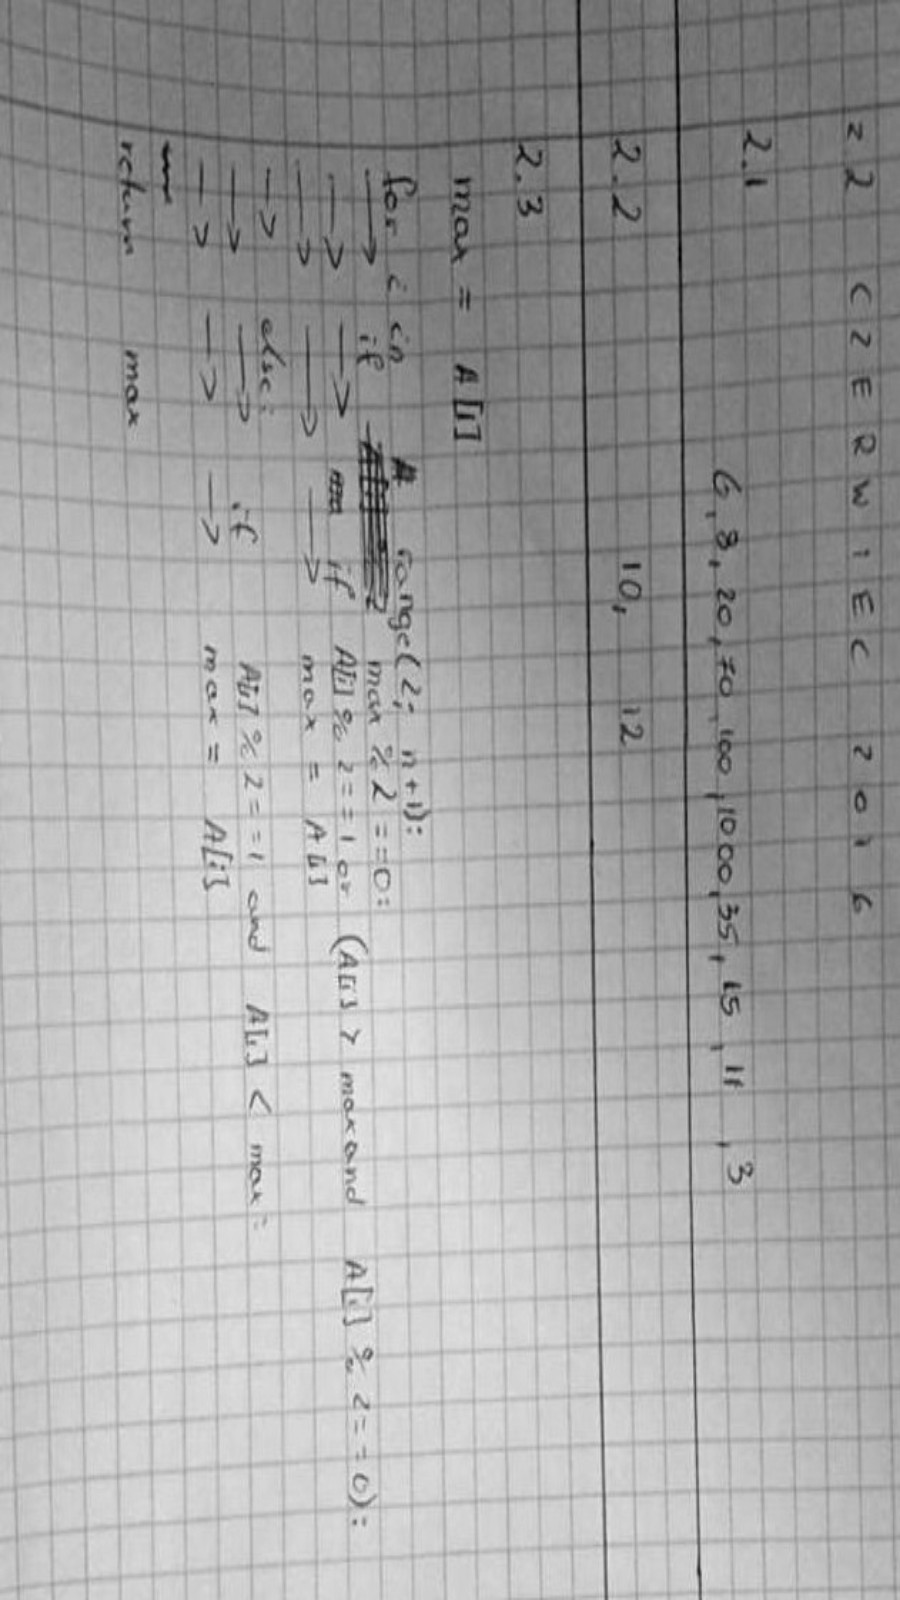 z 2 CZERWIEC 2016
2.1
6, 8, 20, 70, 100, 1000, 35, 15, 11, 3
2.2 10, 12
2.3
max = A[1]
for i in range(2; n+1):
→ if max % 2 == 0:
→ → if A[i] % 2 == 1 or (A[i] > max and A[i] % 2 == 0):
→ → → max = A[i]
→ else:
→ → if A[i] % 2 == 1 and A[i] < max:
→ → → max = A[i]
return max